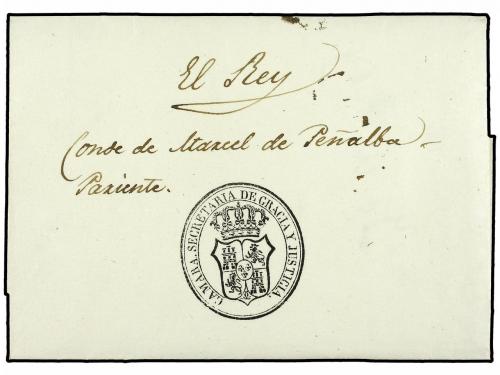 El Rey
Conde de Marcel de Peñalba
Pariente.
CAMARA. SECRETARIA DE GRACIA Y JUSTICIA.